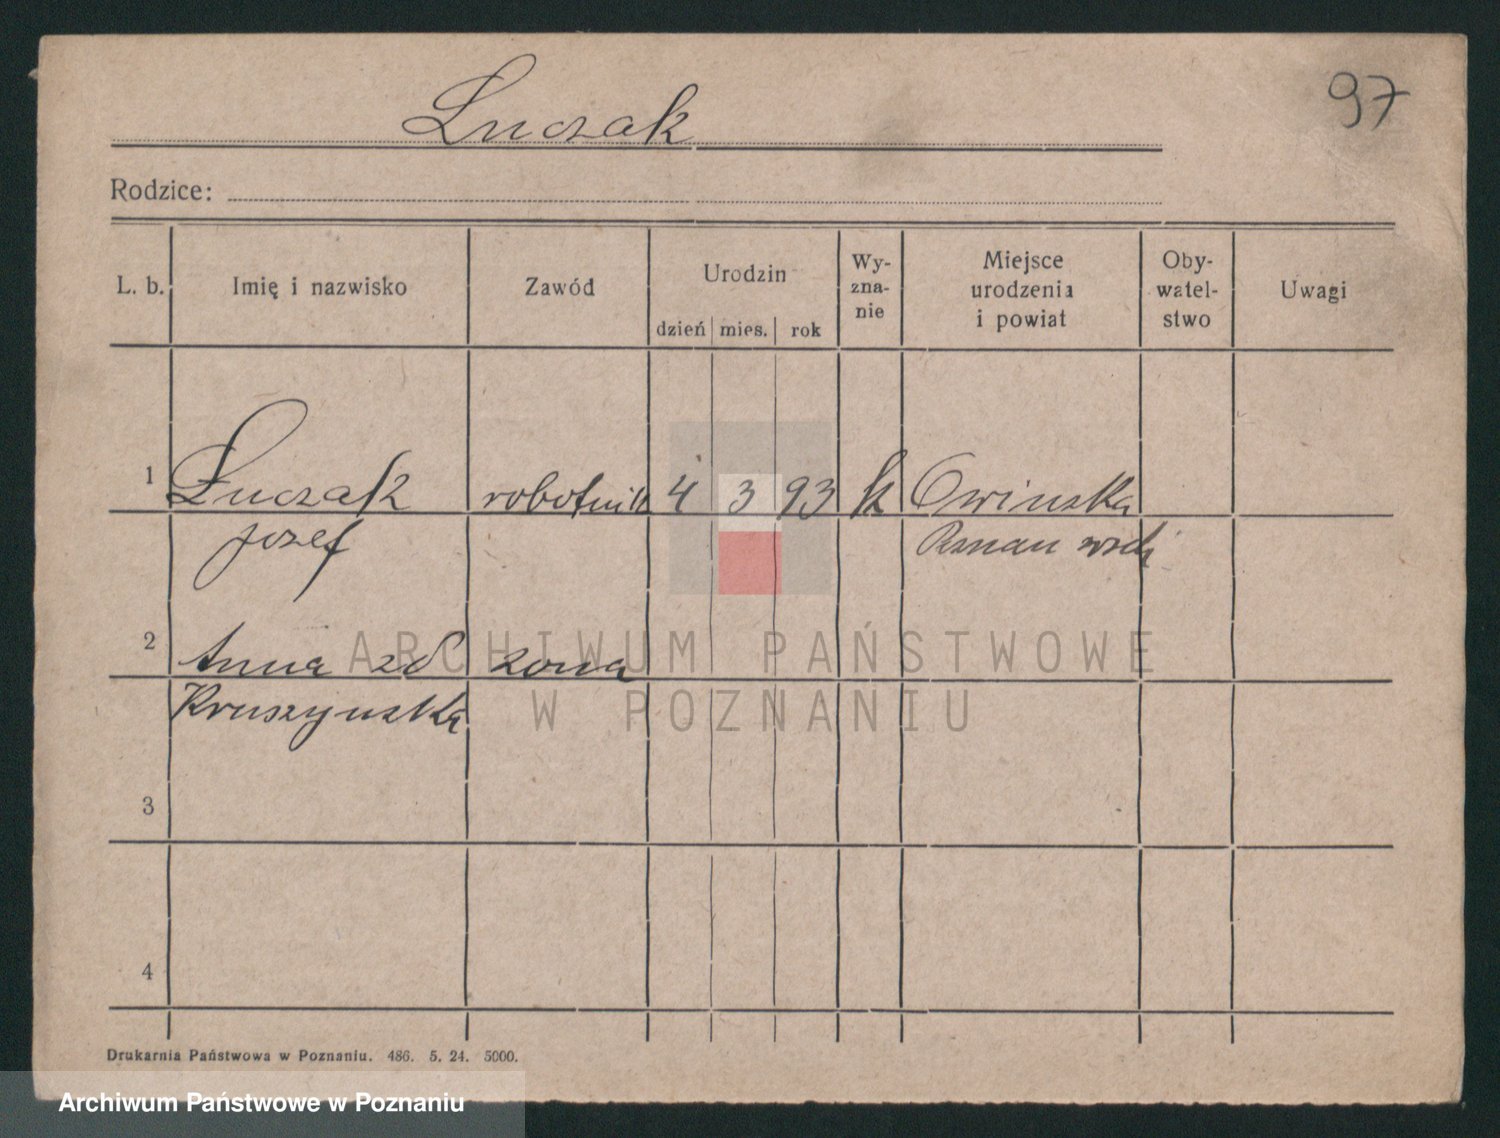 Łuczak
97
Rodzice:
L. b.
Imię i nazwisko
Zawód
Urodzin
dzień mies. rok
Wy-
zna-
nie
Miejsce
urodzenia
i powiat
Oby-
watel-
stwo
Uwagi
1 Łuczak robotnik 4 3 93 k Owinska
Jozef
2 Anna zd zona
Kruszynska
3
4
ARCHIWUM PAŃSTWOWE
W POZNANIU
Drukarnia Państwowa w Poznaniu. 486. 5. 24. 5000.
Archiwum Państwowe w Poznaniu